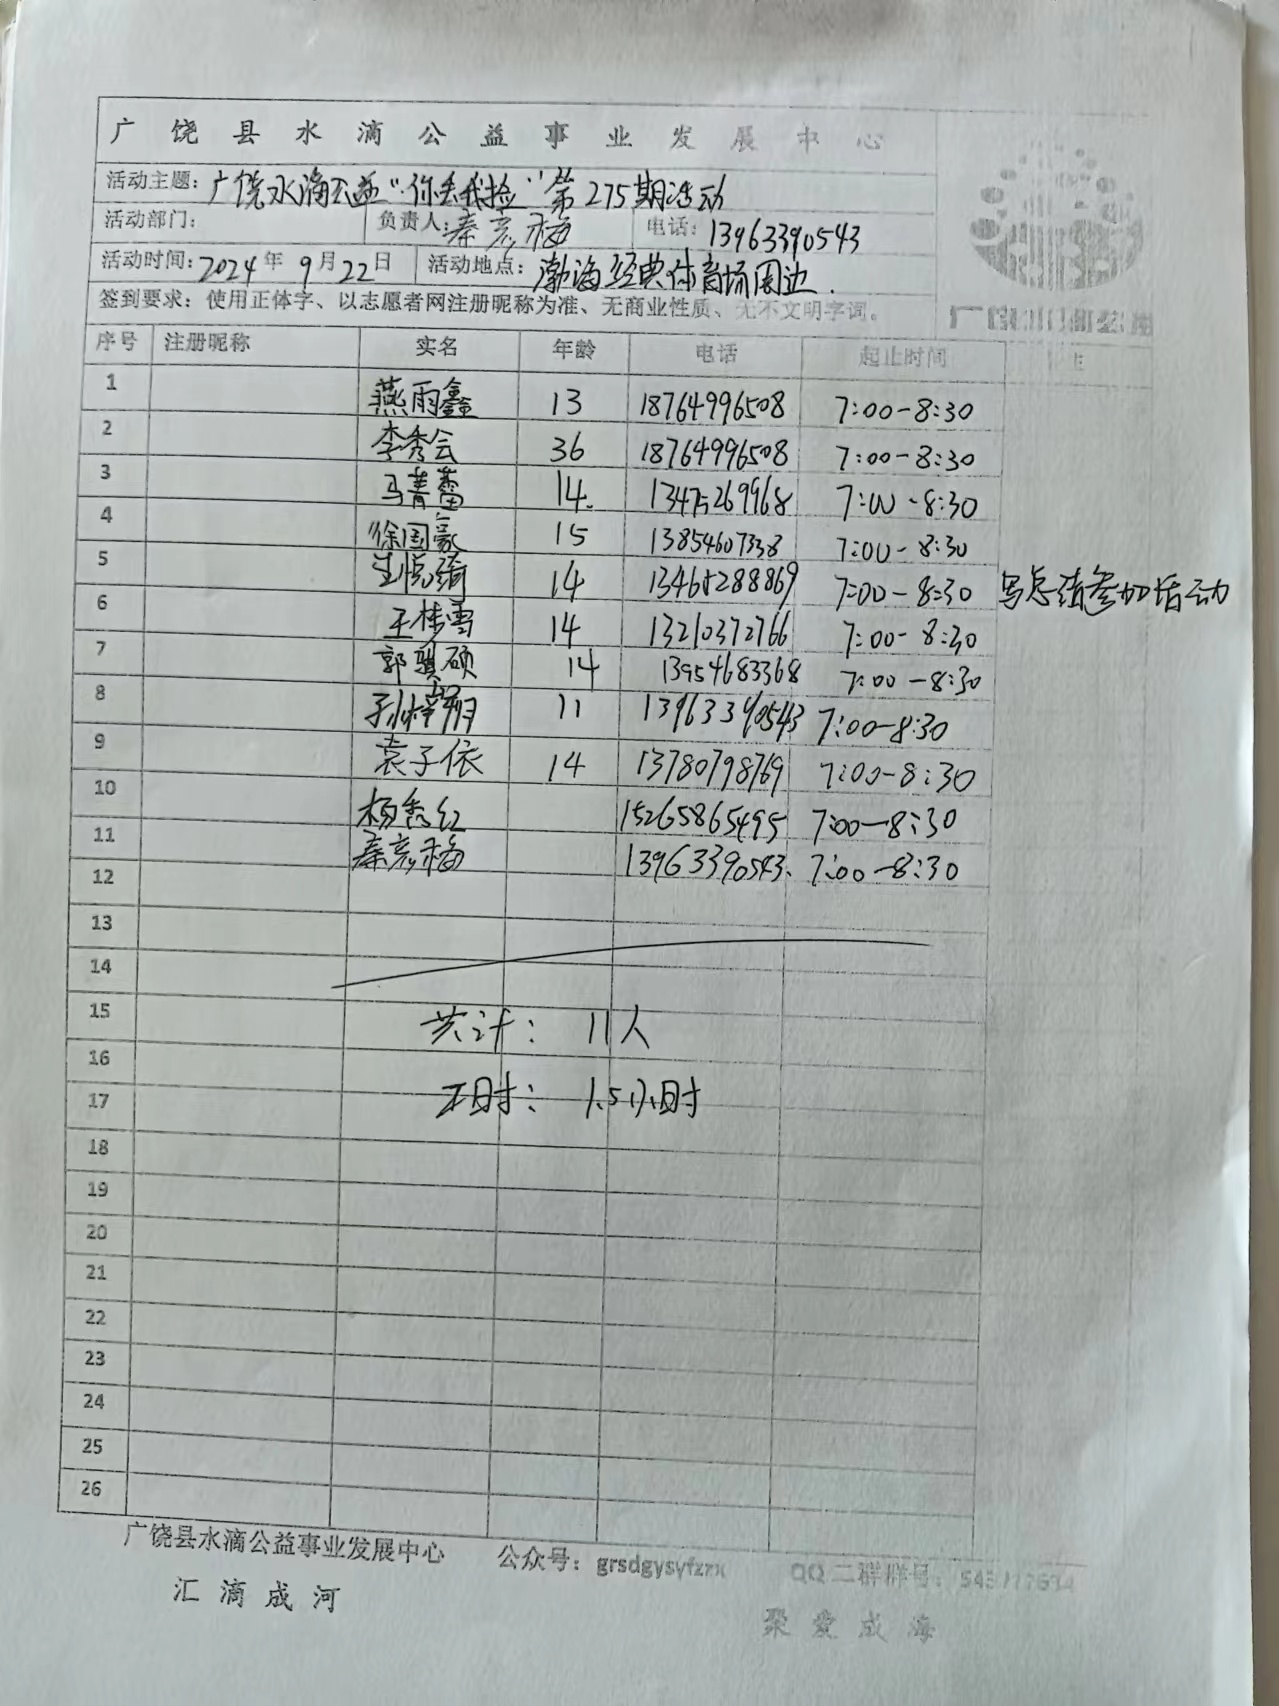 广饶县水滴公益事业发展中心
活动主题：广饶水滴公益“你丢我捡”第275期活动
活动部门： 负责人：秦彦梅 电话：13963390543
活动时间：2024年9月22日 活动地点：渤海经典体育场周边.
签到要求：使用正体字、以志愿者网注册昵称为准、无商业性质、无不文明字词。
序号 注册昵称 实名 年龄 电话 起止时间
1 燕雨鑫 13 18764996508 7:00-8:30
2 李秀会 36 18764996508 7:00-8:30
3 马菁蕾 14. 13475269968 7:00-8:30
4 徐国豪 15 13854607338 7:00-8:30
5 生悦琦 14 13465288869 7:00-8:30 写总结参加活动
6 王桂雪 14 13210372766 7:00-8:30
7 郭骐硕 14 13954683368 7:00-8:30
8 11 13963390543 7:00-8:30
9 袁子依 14 13780798769 7:00-8:30
10 杨秀红 15265865495 7:00-8:30
11 秦彦梅 13963390543. 7:00-8:30
12
13
14
15 共计：11人
16
17 工时：1.5小时
18
19
20
21
22
23
24
25
26
广饶县水滴公益事业发展中心 公众号：grsdgysyfzzx QQ二群群号：
汇滴成河 聚爱成海